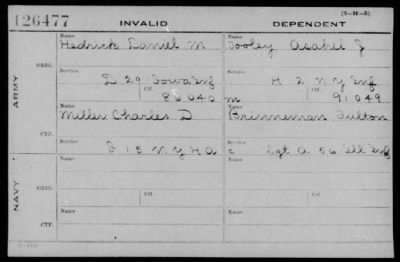 126477 INVALID DEPENDENT [3-H-3]
Name Name
Hedrick Daniel M Tooley Asahel J
ORIG.
Service Service
D 29 Iowa Inf H 2 N Y Inf
Ctf. 86040 m Ctf. 91049
ARMY
Name Name
Miller Charles D Brinneman Fulton
Service Service
CTF. I 15 N Y H A c Sgt A 56 Ill Inf
Name Name
ORIG.
Service Ctf. Service Ctf.
NAVY
Name Name
CTF.
Service Service